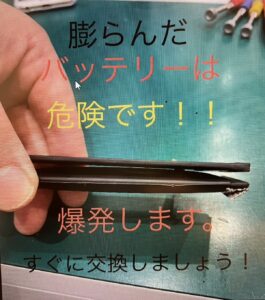 膨らんだ
バッテリーは
危険です！！
爆発します。
すぐに交換しましょう！